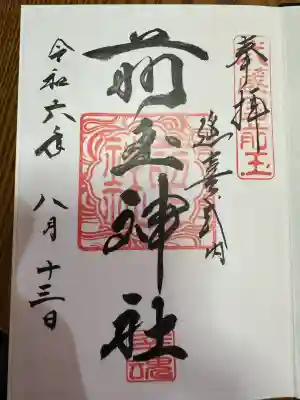 奉拝
延喜式内
前玉神社
令和六年
八月十三日